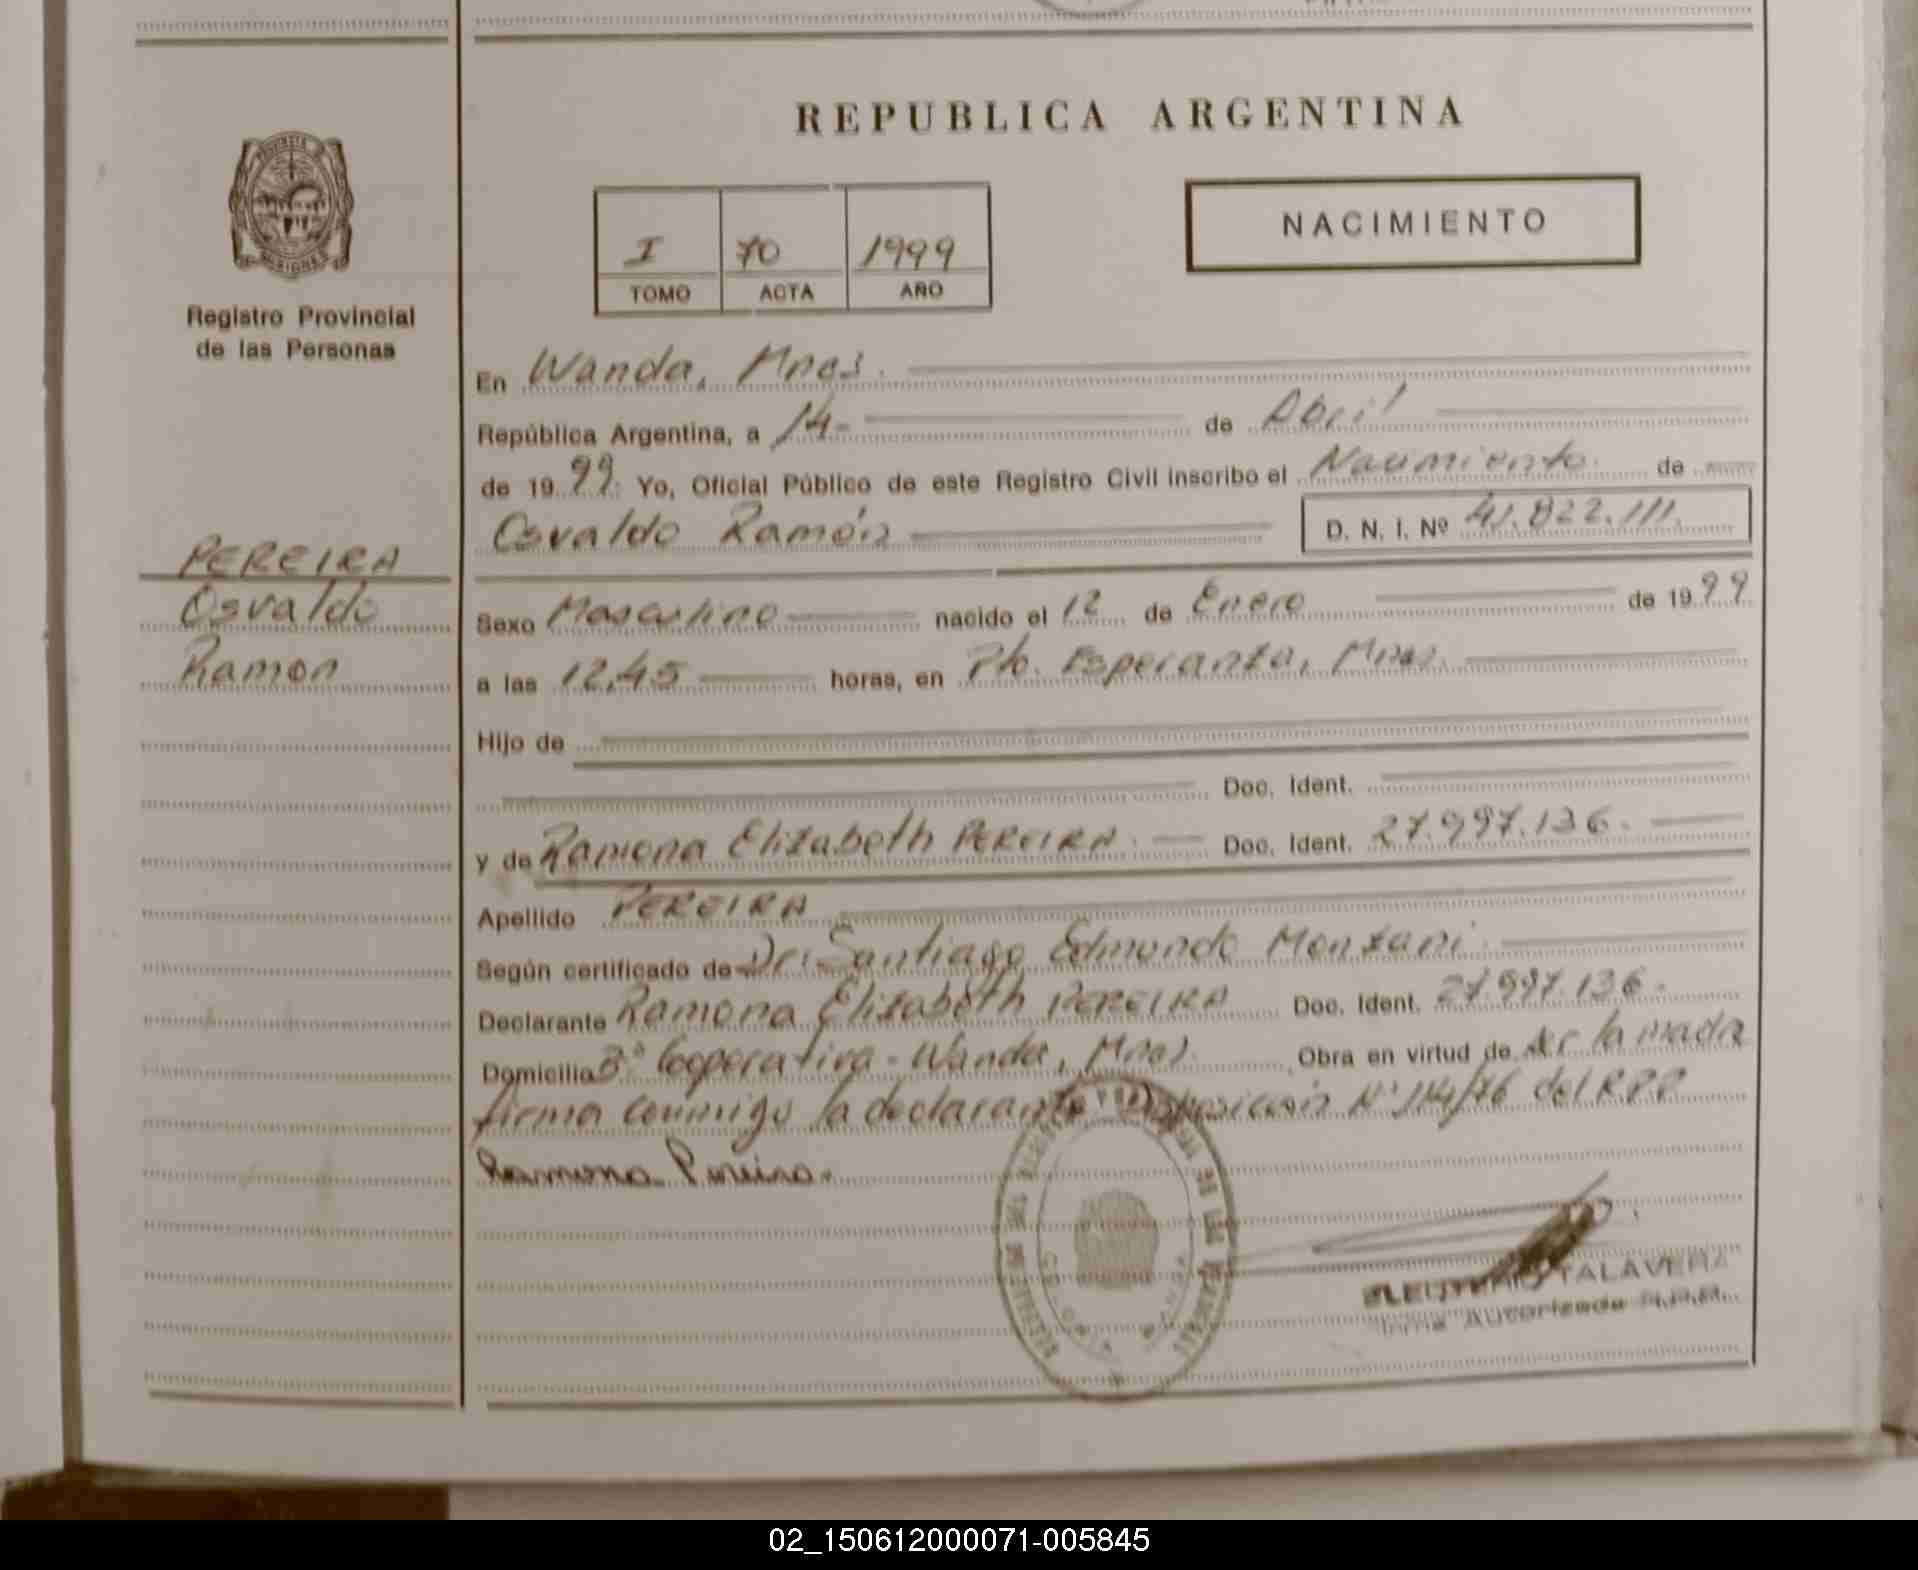 REPUBLICA ARGENTINA
NACIMIENTO
I 70 1999
TOMO ACTA AÑO
MISIONES
Registro Provincial
de las Personas
En Wanda, Mnes.
República Argentina, a 14- de Abril
de 1999. Yo, Oficial Público de este Registro Civil inscribo el Nacimiento de
Osvaldo Ramón D. N. I. Nº 41.822.111.
PEREIRA
Osvaldo
Ramon
Sexo Masculino nacido el 12 de Enero de 1999
a las 12,45 horas, en Pto. Esperanza, Mnes.
Hijo de
Doc. Ident.
y de Ramona Elizabeth PEREIRA. Doc. Ident. 27.997.136.
Apellido PEREIRA
Según certificado de Dr: Santiago Edmundo Monzani.
Declarante Ramona Elizabeth PEREIRA Doc. Ident. 27.997.136.
Domicilio Bº Cooperativa - Wanda, Mnes. Obra en virtud de ser la madre
firma conmigo la declarante Disposición Nº 114/76 del R.P.P
Ramona Pereira.
TALAVERA
Firma Autorizada R.P.P.
02_150612000071-005845